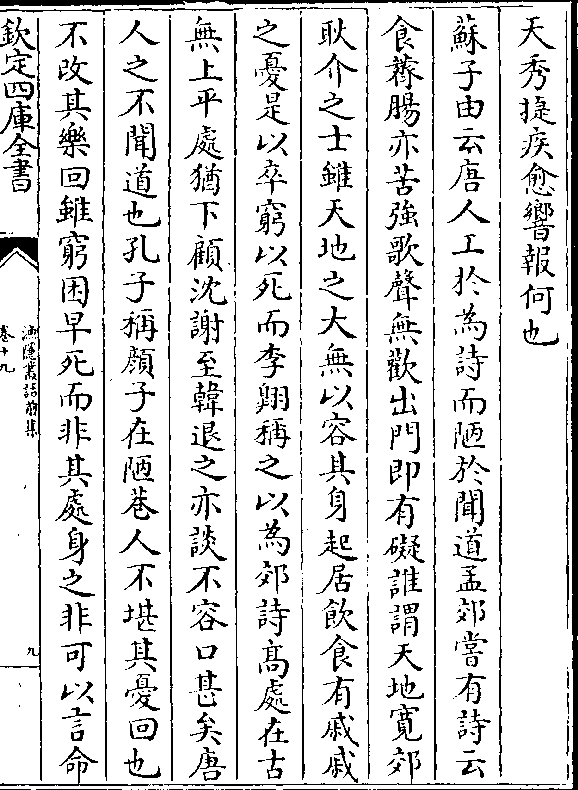 天秀捷疾愈響報何也
蘇子由云唐人工於為詩而陋於聞道孟郊嘗有詩云
食薺腸亦苦強歌聲無歡出門即有礙誰謂天地寬郊
耿介之士雖天地之大無以容其身起居飲食有戚戚
之憂是以卒窮以死而李翱稱之以為郊詩髙處在古
無上平處猶下顧沈謝至韓退之亦談不容口甚矣唐
人之不聞道也孔子稱顔子在陋巷人不堪其憂回也
不改其樂回雖窮困早死而非其處身之非可以言命
欽定四庫全書
漁隱叢話前集
卷十九
九